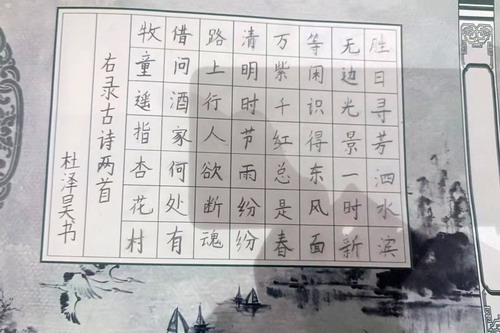 胜日寻芳泗水滨
无边光景一时新
等闲识得东风面
万紫千红总是春
清明时节雨纷纷
路上行人欲断魂
借问酒家何处有
牧童遥指杏花村
右录古诗两首
杜泽昊书